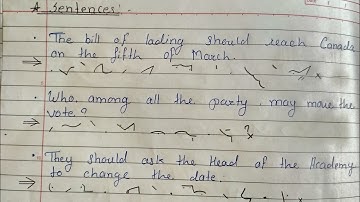 * Sentences:
• The bill of lading should reach Canada
on the fifth of March.
• Who among all the party, may move the
vote?
• They should ask the Head of the Academy
to change the date.